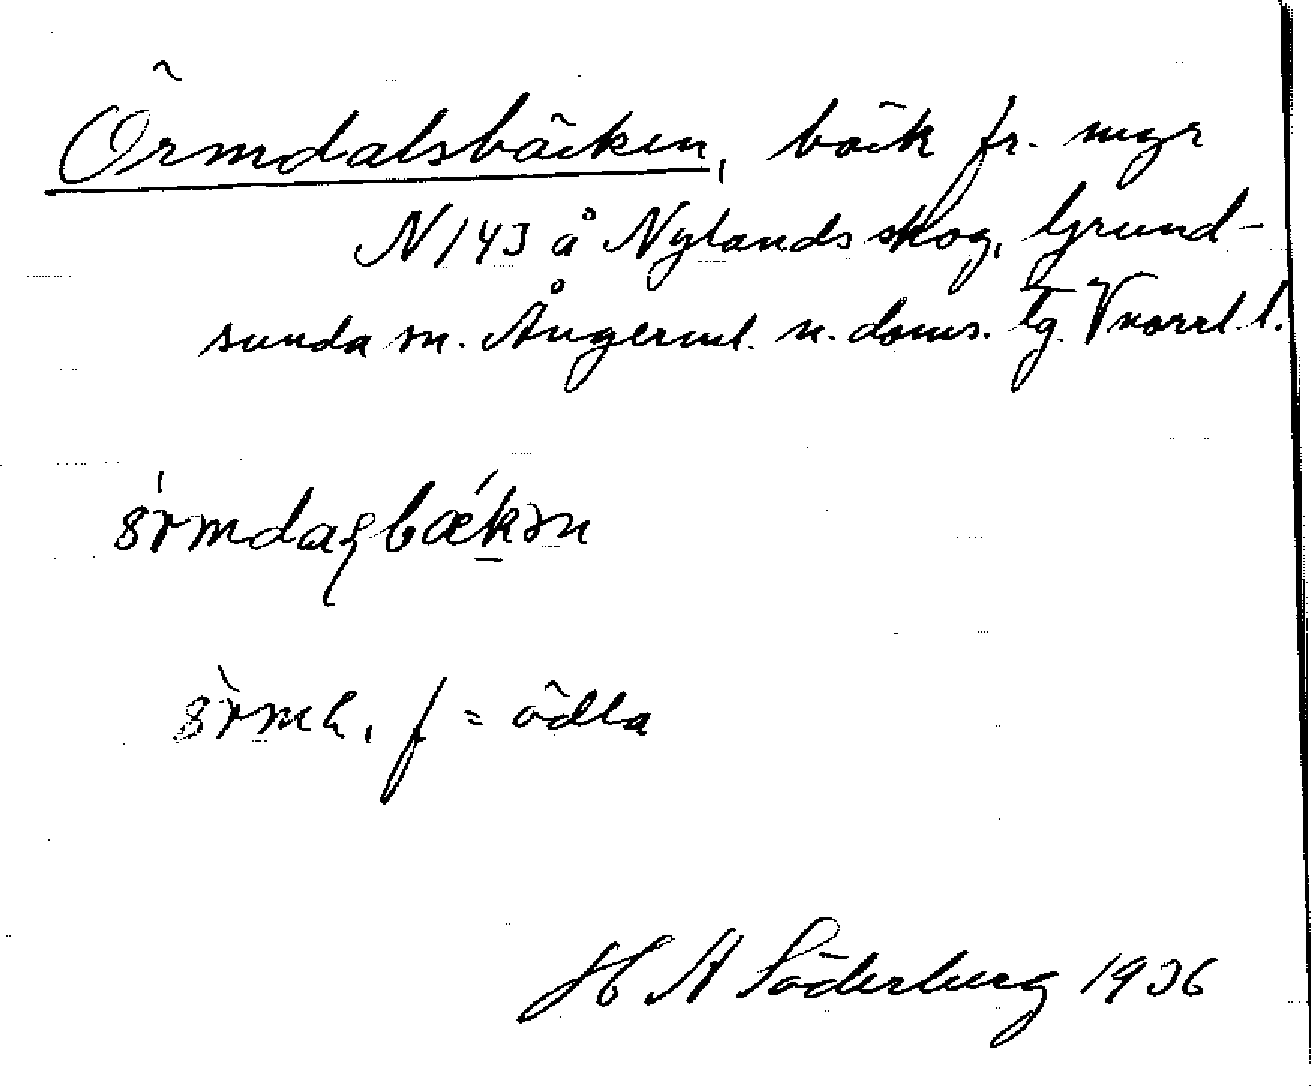 Örmdalsbäcken, bäck fr. myr
N 143 å Nylands skog, Grund-
sunda sn. Ångerml. n. doms. tg. Vnorrl. l.
f = ödla
H A Söderberg 1936